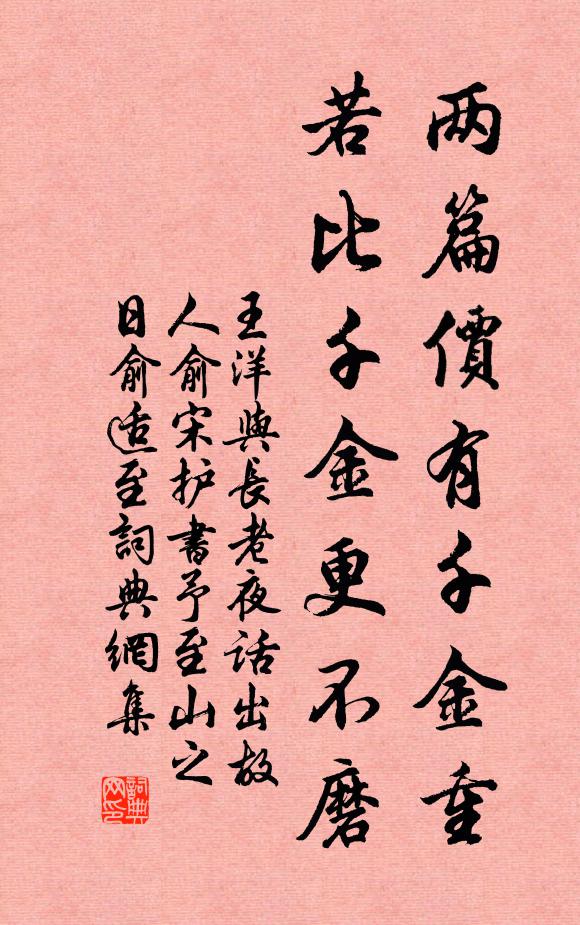 两篇價有千金重
若比千金更不磨
王洋與長老夜話出故
人俞宋护書予至山之
日俞适至詞典網集
詞典
网印